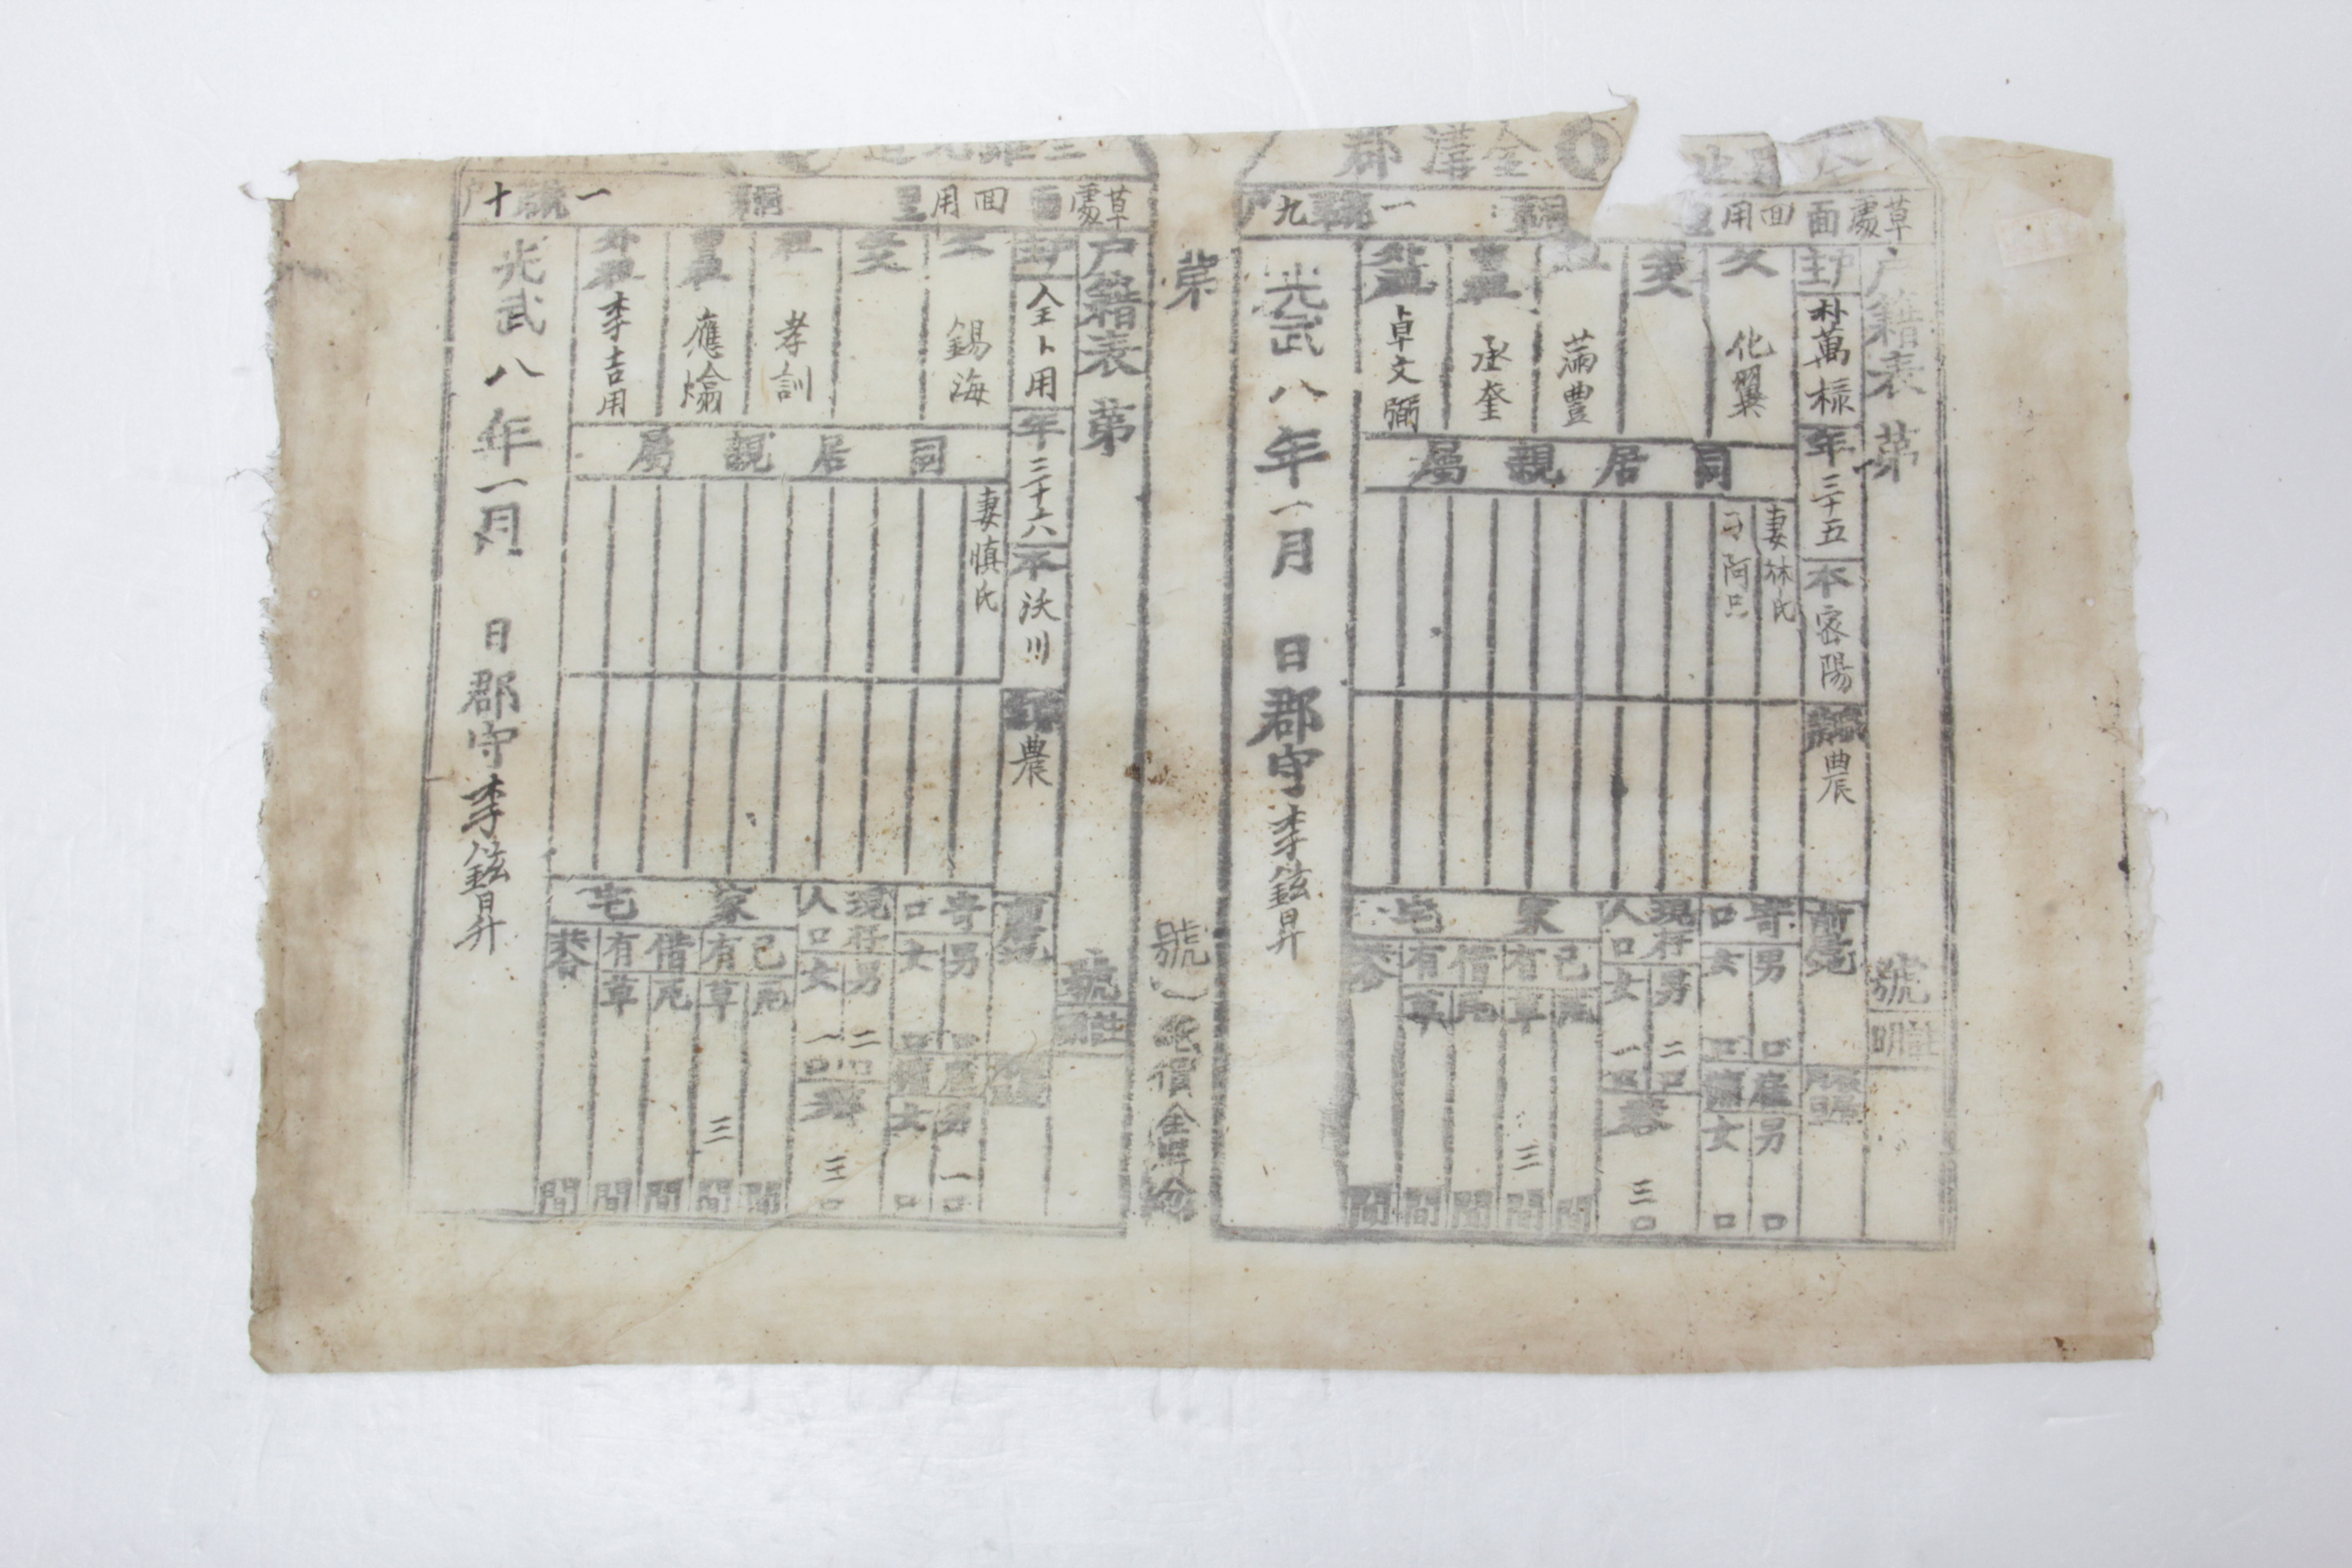 全 北
全溝郡
草處面 回用里 統 一號 九戶
戶籍表 第 號
戶主 朴萬祿 年 三十五 本 密陽 職業 農 前居
父 化翼
生父
祖 滿豊
曾祖 丞奎
外祖 卓文弼
同居親屬
妻 林氏
子 阿只
寄口 男 口 女 口
雇傭 男 口 女 口
現存人口 男 二口 女 一口
共合 三口
家宅
己有 瓦 間 草 三間
借有 瓦 間 草 間
共合 間
光武八年一月 日 郡守 李鉉昇
第 號 紙價金 分
全羅北道
草處面 回用里 統 一號 十戶
戶籍表 第 號
戶主 全卜用 年 三十六 本 沃川 職業 農 前居
父 錫海
生父
祖 孝訓
曾祖 應爚
外祖 李吉用
同居親屬
妻 愼氏
寄口 男 口 女 口
雇傭 男 一口 女 口
現存人口 男 二口 女 一口
共合 三口
家宅
己有 瓦 間 草 三間
借有 瓦 間 草 間
共合 間
光武八年一月 日 郡守 李鉉昇